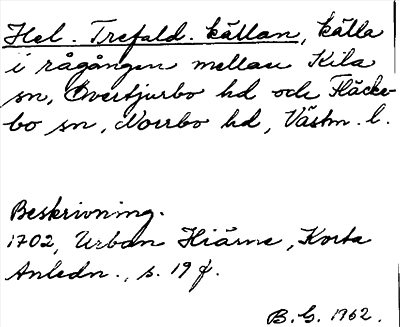 Hel. Trefald. källan, källa
i rågången mellan Kila
sn, Överstjurbo hd och Fläcke-
bo sn, Norrbo hd, Västm. l.
Beskrivning.
1702, Urban Hiärne, Korta
Anledn., s. 19 f.
B. G. 1962.